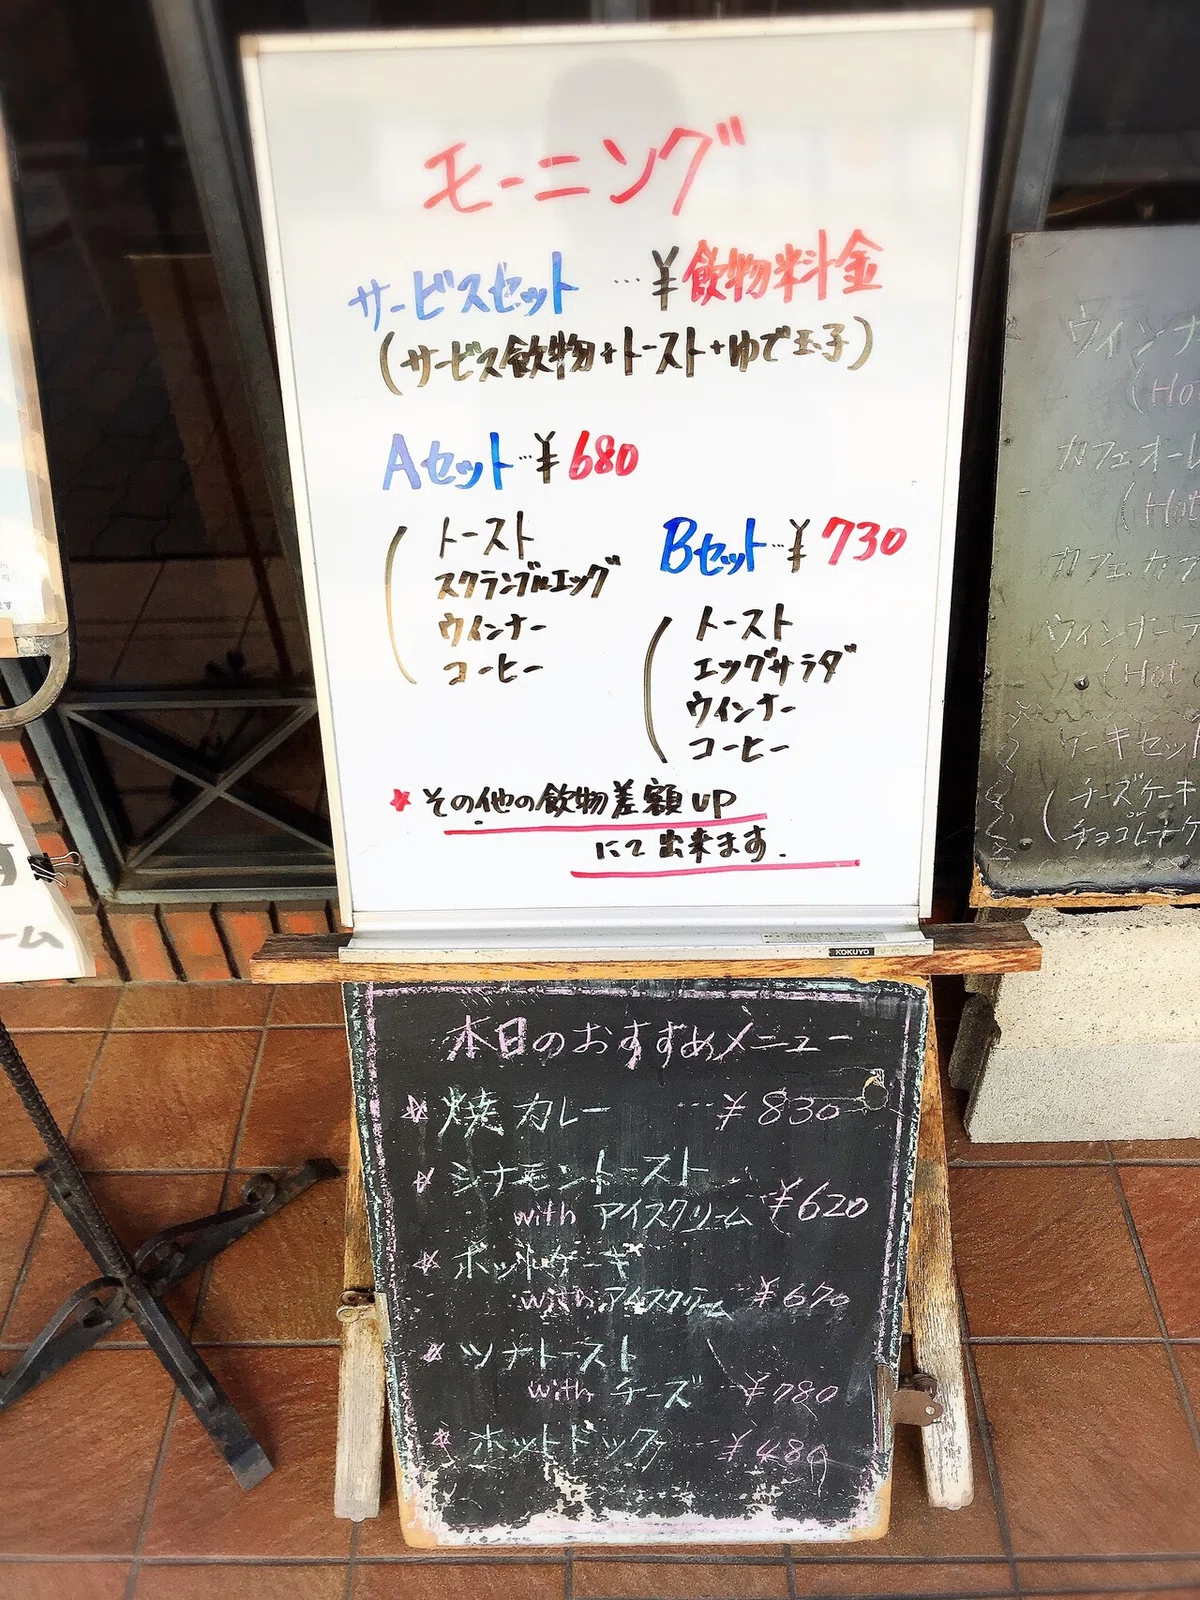 モーニング
サービスセット …¥飲物料金
(サービス飲物+トースト+ゆで玉子)
Aセット…¥680
トースト
スクランブルエッグ
ウインナー
コーヒー
Bセット…¥730
トースト
エッグサラダ
ウインナー
コーヒー
★その他の飲物差額UP
にて出来ます.
KOKUYO
本日のおすすめメニュー
☆焼カレー …¥830
☆シナモントースト
with アイスクリーム ¥620
☆ホットケーキ
with アイスクリーム ¥670
☆ツナトースト
with チーズ ¥780
☆ホットドック …¥480
ウィンナ
(Ho
カフェオーレ
(Hot
カフェ
ウィンナー
(Hot
ケーキセット
(チーズケーキ
チョコレートケ
す
ーム